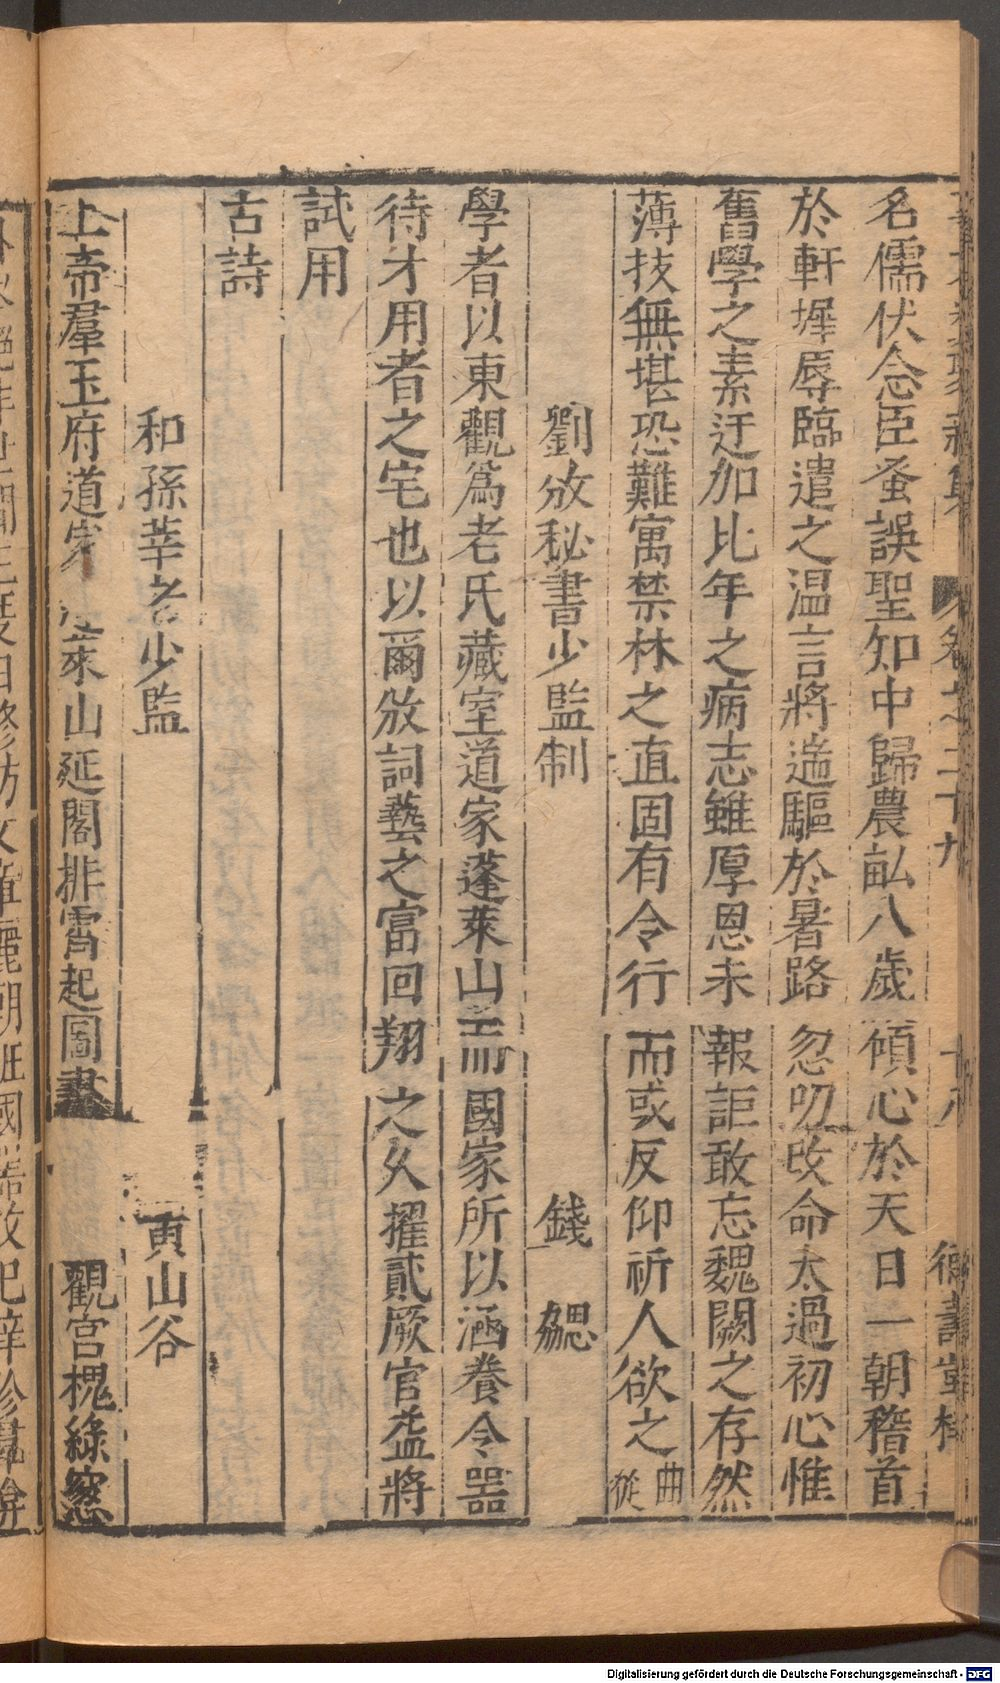 卷之二十九
名儒伏念臣蚤誤聖知中歸農畝八歲傾心於天日一朝稽首
於軒墀辱臨遣之温言將遄驅於暑路忽叨改命太過初心惟
舊學之素迂加比年之病志雖厚恩未報詎敢忘魏闕之存然
薄技無堪恐難寓禁林之直固有令行而或反仰祈人欲之曲從
劉攽秘書少監制 錢勰
學者以東觀爲老氏藏室道家蓬萊山而國家所以涵養令器
待才用者之宅也以爾攽詞藝之富回翔之久擢貳厥官葢將
試用
古詩
和孫莘老少監 黄山谷
上帝羣玉府道家蓬萊山延閣排霄起圖書 觀宫槐綠窻
Digitalisierung gefördert durch die Deutsche Forschungsgemeinschaft - DFG